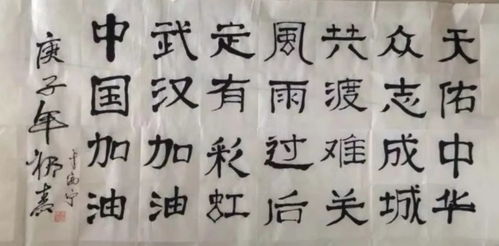 天佑中华
众志成城
共渡难关
風雨过后
定有彩虹
武汉加油
中国加油
庚子年